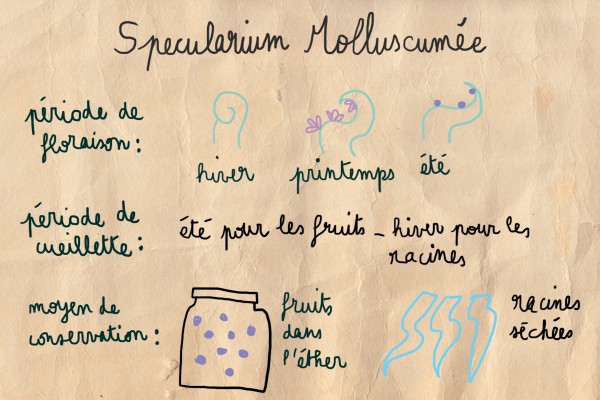 Specularium Molluscumée
période de
floraison:
hiver
printemps
été
période de
cueillette:
été pour les fruits - hiver pour les
racines
moyen de
conservation:
fruits
dans
l'éther
racines
séchées